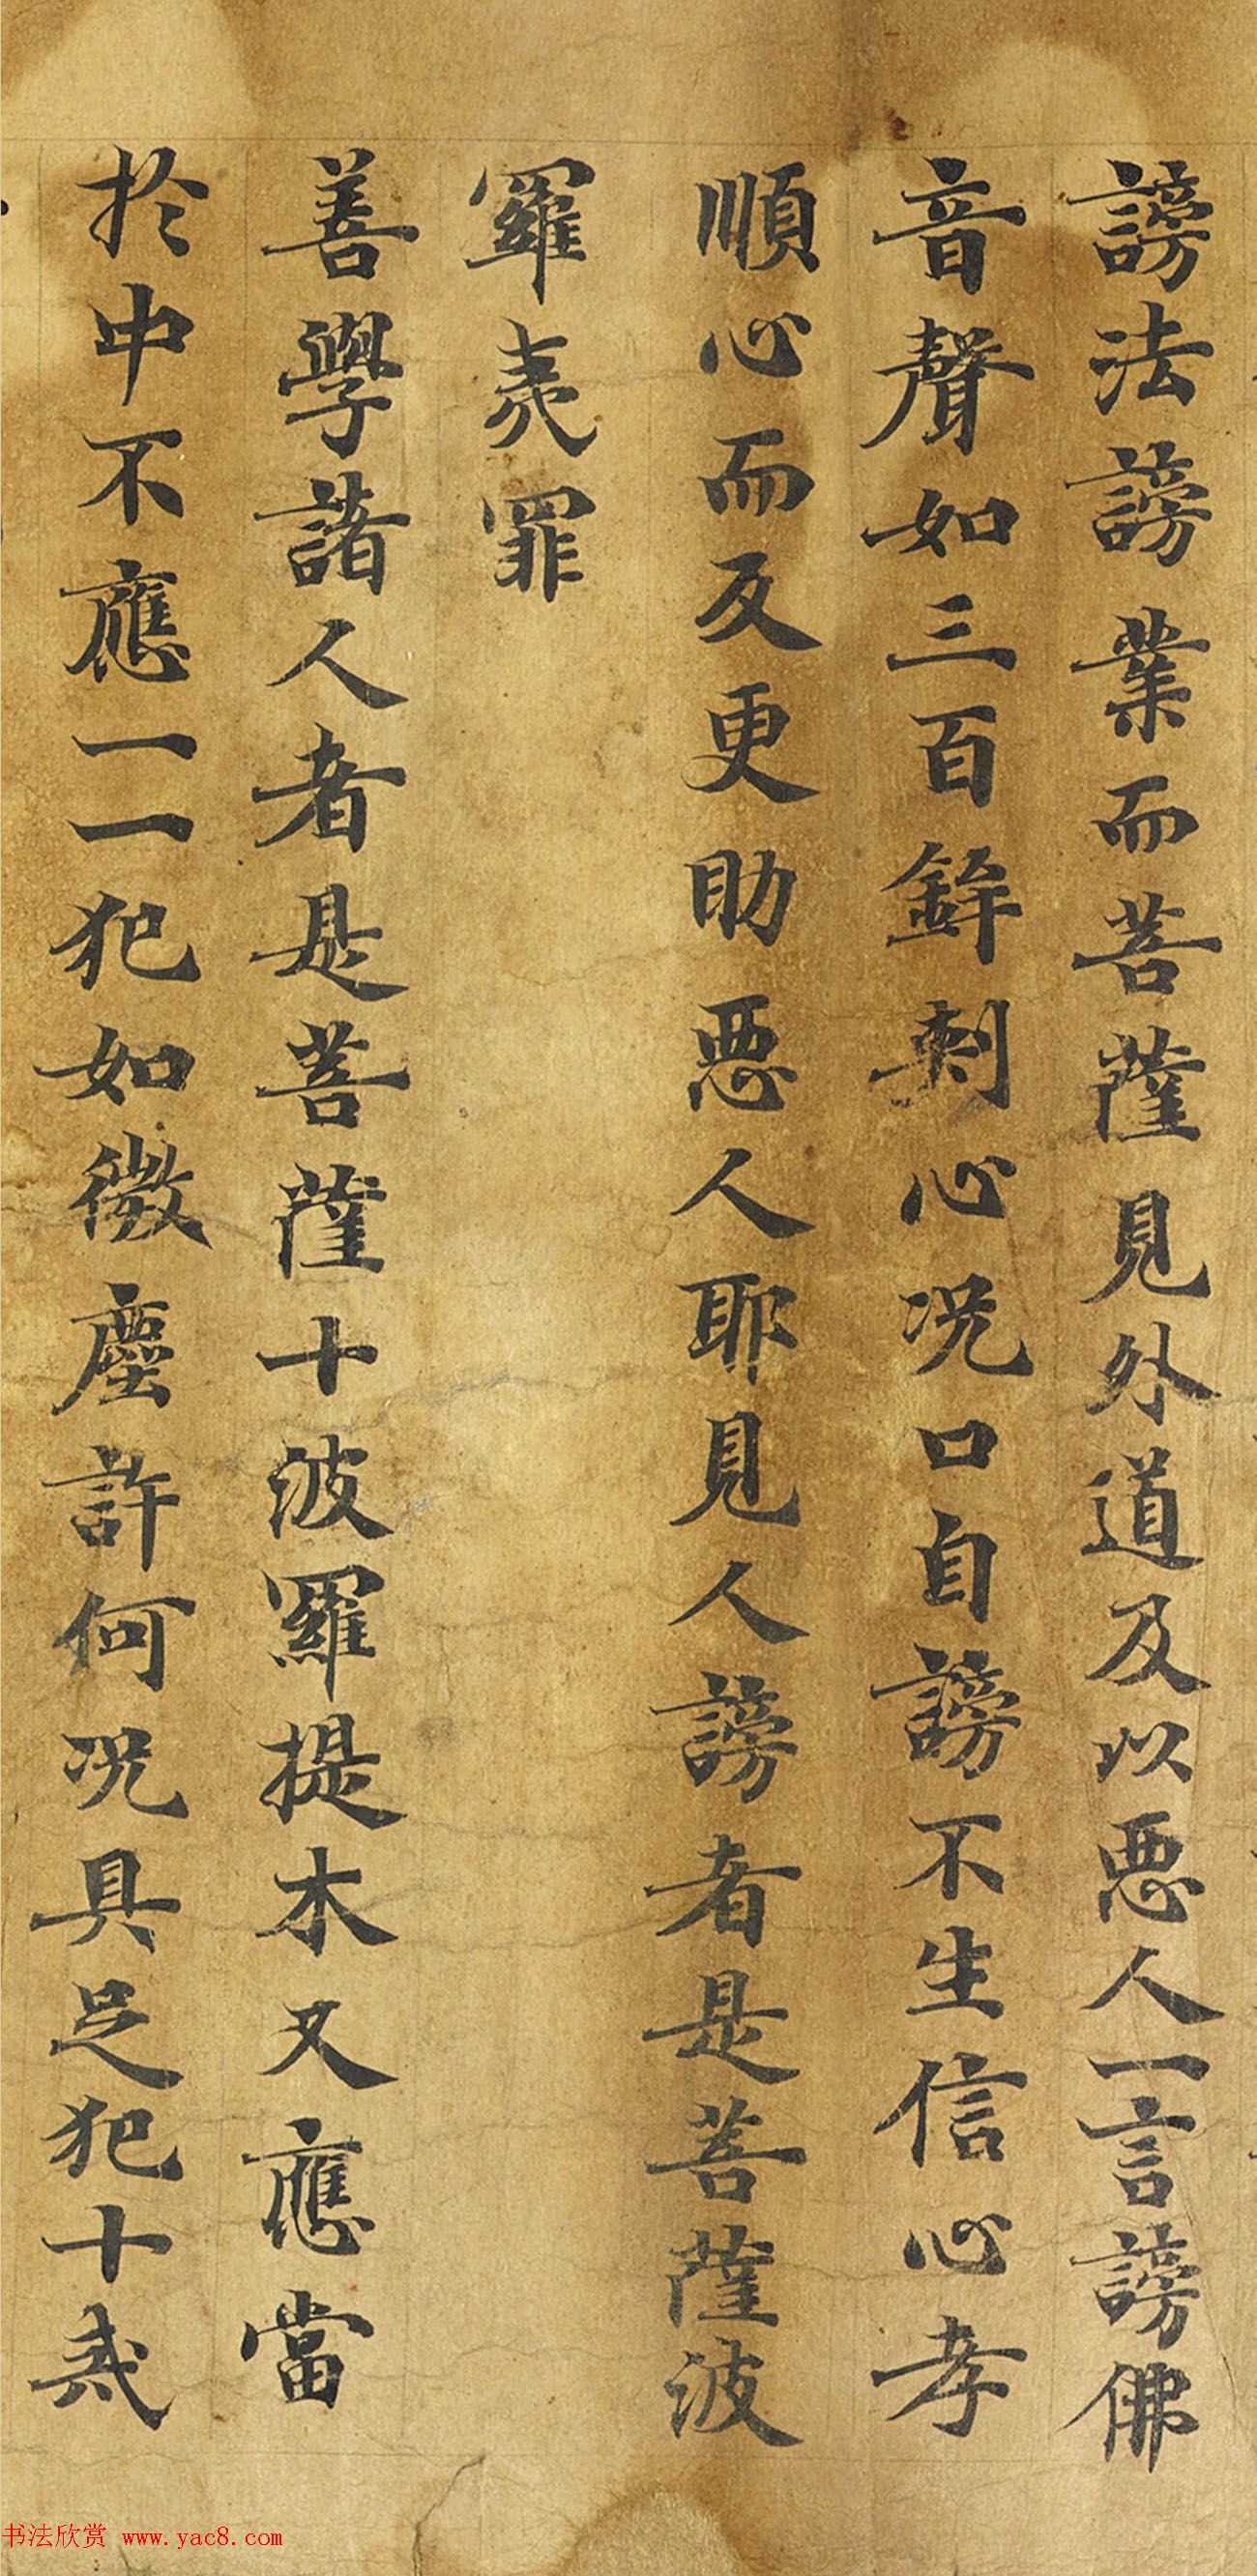 謗法謗業而菩薩見外道及以惡人一言謗佛
音聲如三百鉾刺心況口自謗不生信心孝
順心而反更助惡人耶見人謗者是菩薩波
羅夷罪
善學諸人者是菩薩十波羅提木叉應當
於中不應一一犯如微塵許何況具足犯十戒
书法欣赏 www.yac8.com